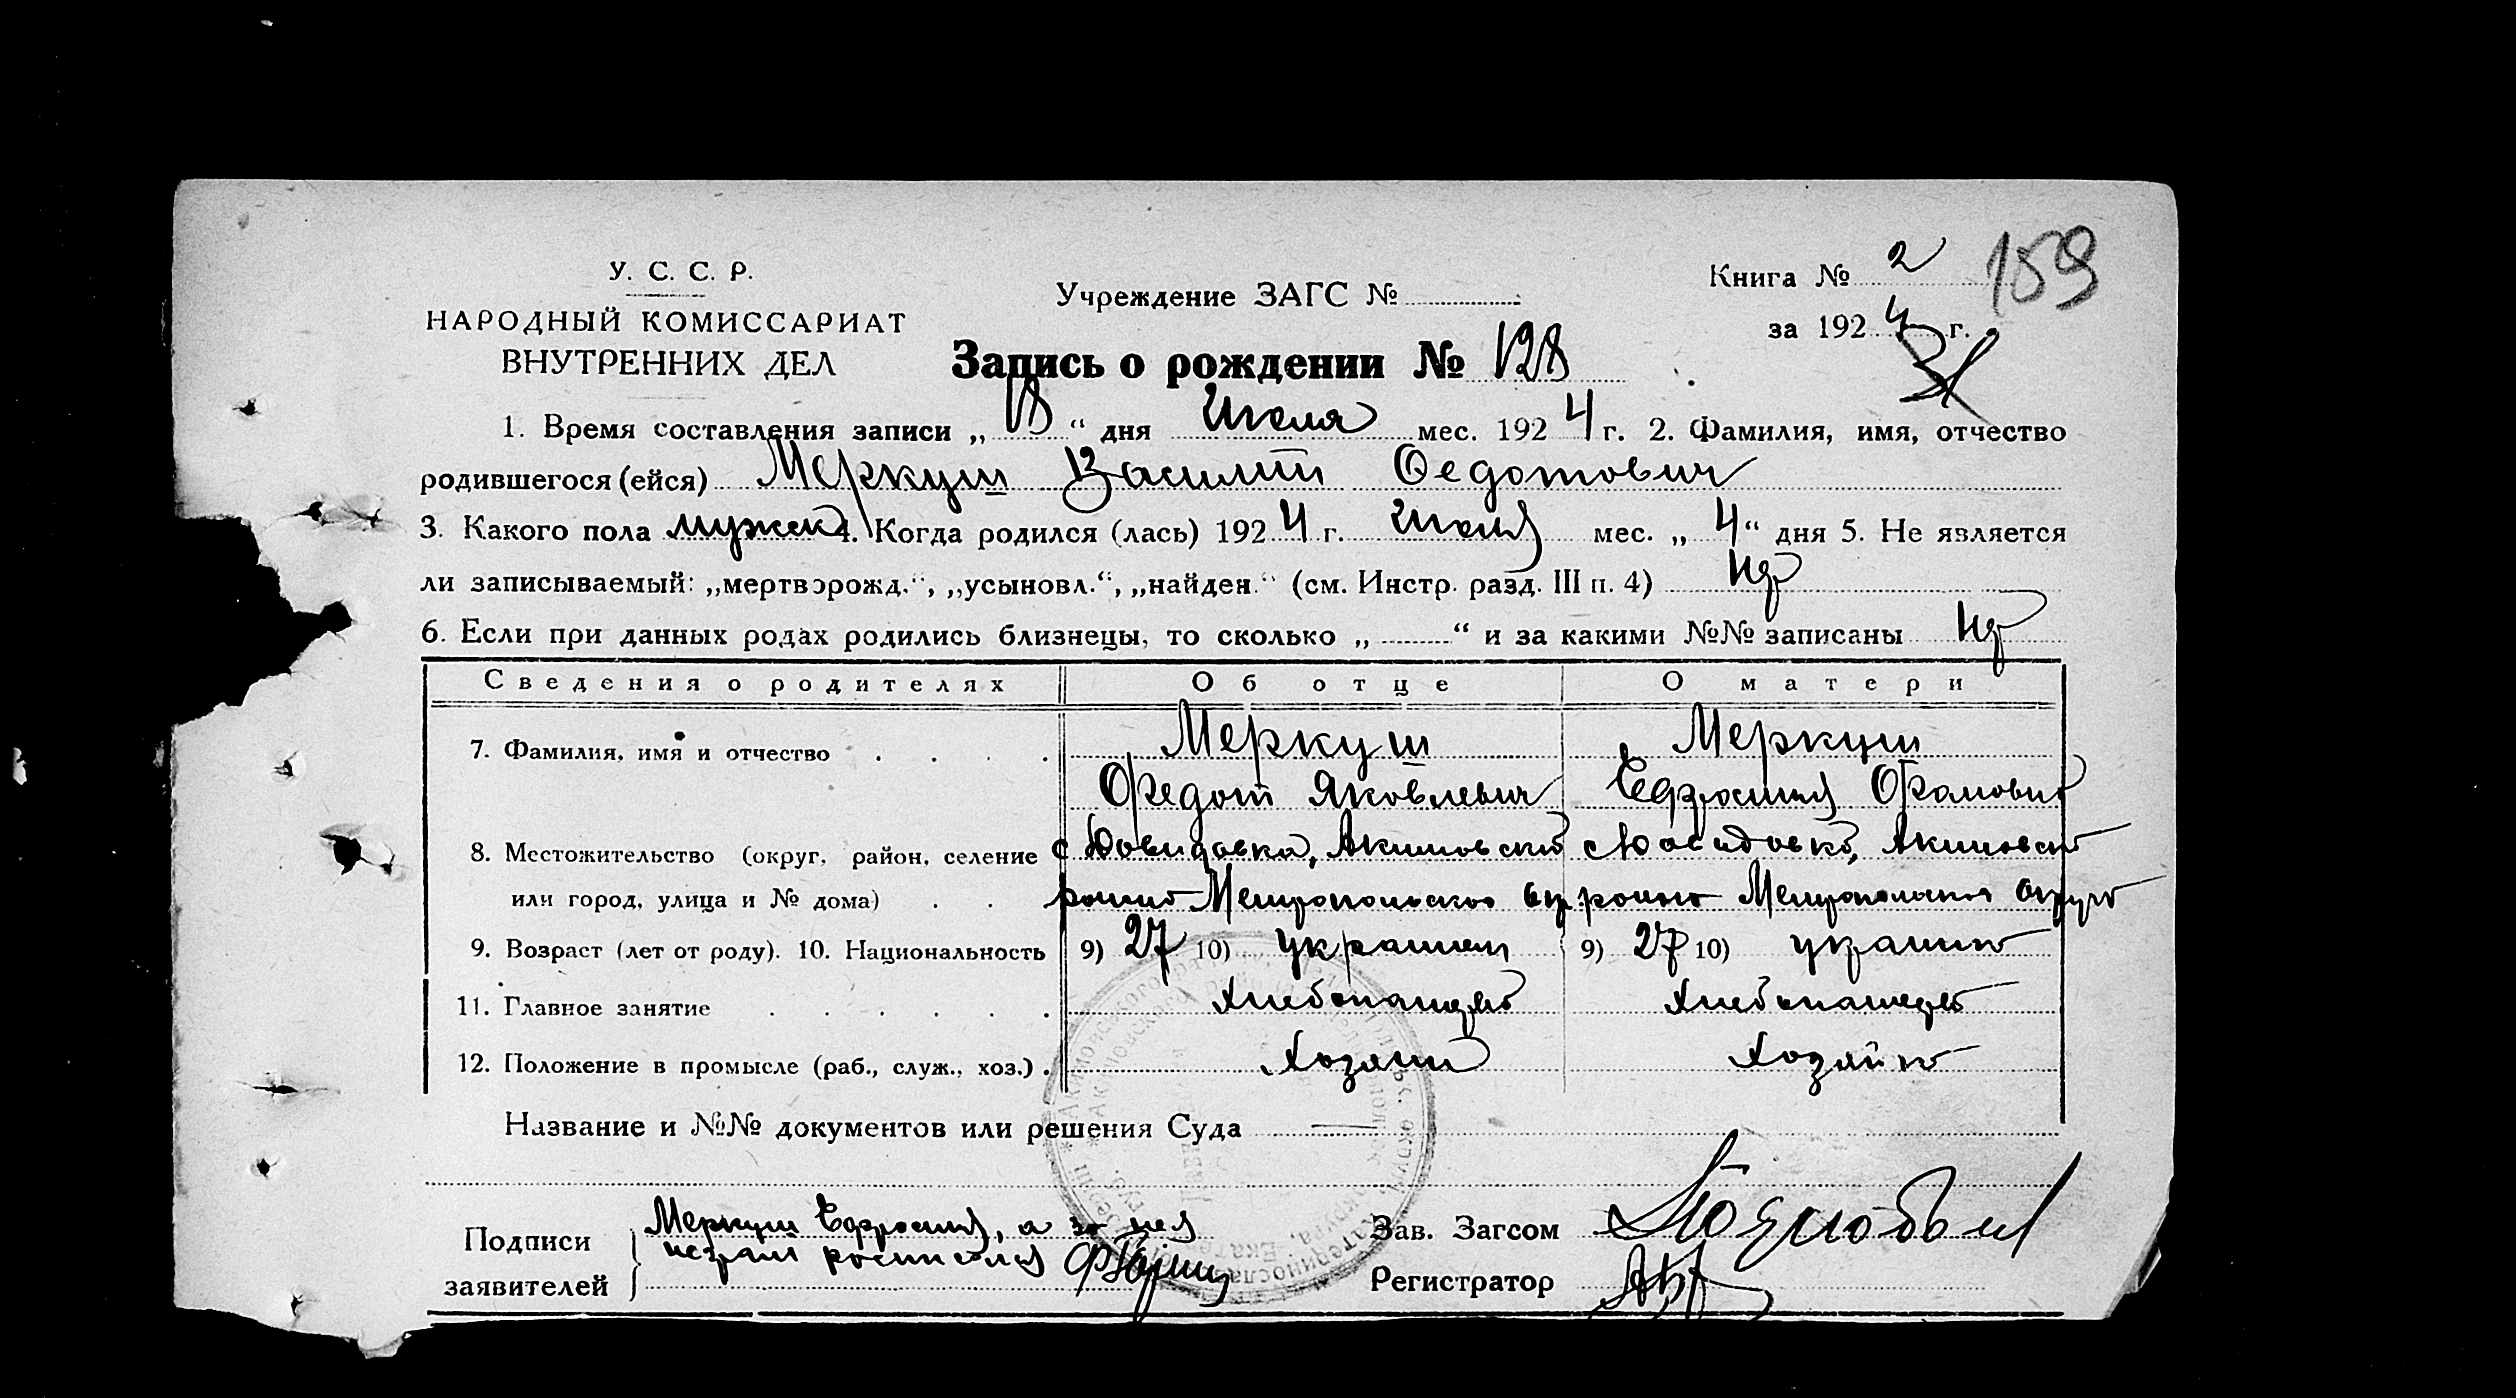 У. С. С. Р.
НАРОДНЫЙ КОМИССАРИАТ
ВНУТРЕННИХ ДЕЛ
Учреждение ЗАГС №
Книга № 2
159
за 1924 г.
Запись о рождении № 128
1. Время составления записи „18“ дня Июля мес. 1924 г. 2. Фамилия, имя, отчество
родившегося (ейся) Меркуш Василий Федотович
3. Какого пола мужск 4. Когда родился (лась) 1924 г. Июля мес. „4“ дня 5. Не является
ли записываемый: „мертворожд.“, „усыновл.“, „найден.“ (см. Инстр. разд. III п. 4)
6. Если при данных родах родились близнецы, то сколько „ “ и за какими №№ записаны
Сведения о родителях Об отце О матери
7. Фамилия, имя и отчество Меркуш Меркуш
Федот Яковлевич Ефросиния
8. Местожительство (округ, район, селение с Давидовка, Акимовской с Давидовка, Акимовской
или город, улица и № дома) района Мелитопольского окр района Мелитопольского округа
9. Возраст (лет от роду). 10. Национальность 9) 27 10) украинец 9) 27 10) украинка
11. Главное занятие Хлебопашество Хлебопашество
12. Положение в промысле (раб., служ., хоз.) Хозяин Хозяйка
Название и №№ документов или решения Суда —
Подписи заявителей
Меркуш Ефросиния, а за нея
неграм росписался
Зав. Загсом
Регистратор